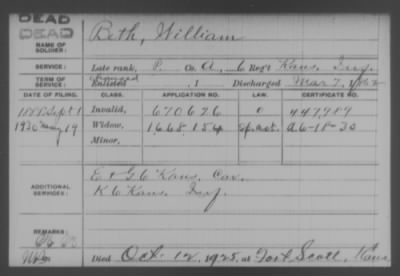 DEAD
DEAD
Beth, William
NAME OF SOLDIER:
SERVICE: Late rank, P. Co. A, 6 Reg't Kans. Inf.
TERM OF SERVICE: Enlisted , 1 Discharged Mar 7, 1862
DATE OF FILING. CLASS. APPLICATION NO. LAW. CERTIFICATE NO.
1888 Sept 1 Invalid, 670626 0 447,989
1930 May 19 Widow, 1668154 Sp. act. A 6-18-30
Minor,
ADDITIONAL SERVICES: E & G 6 Kans. Cav.
K 6 Kans. Inf.
REMARKS:
Died Oct. 12, 1925, at Fort Scott, Kans